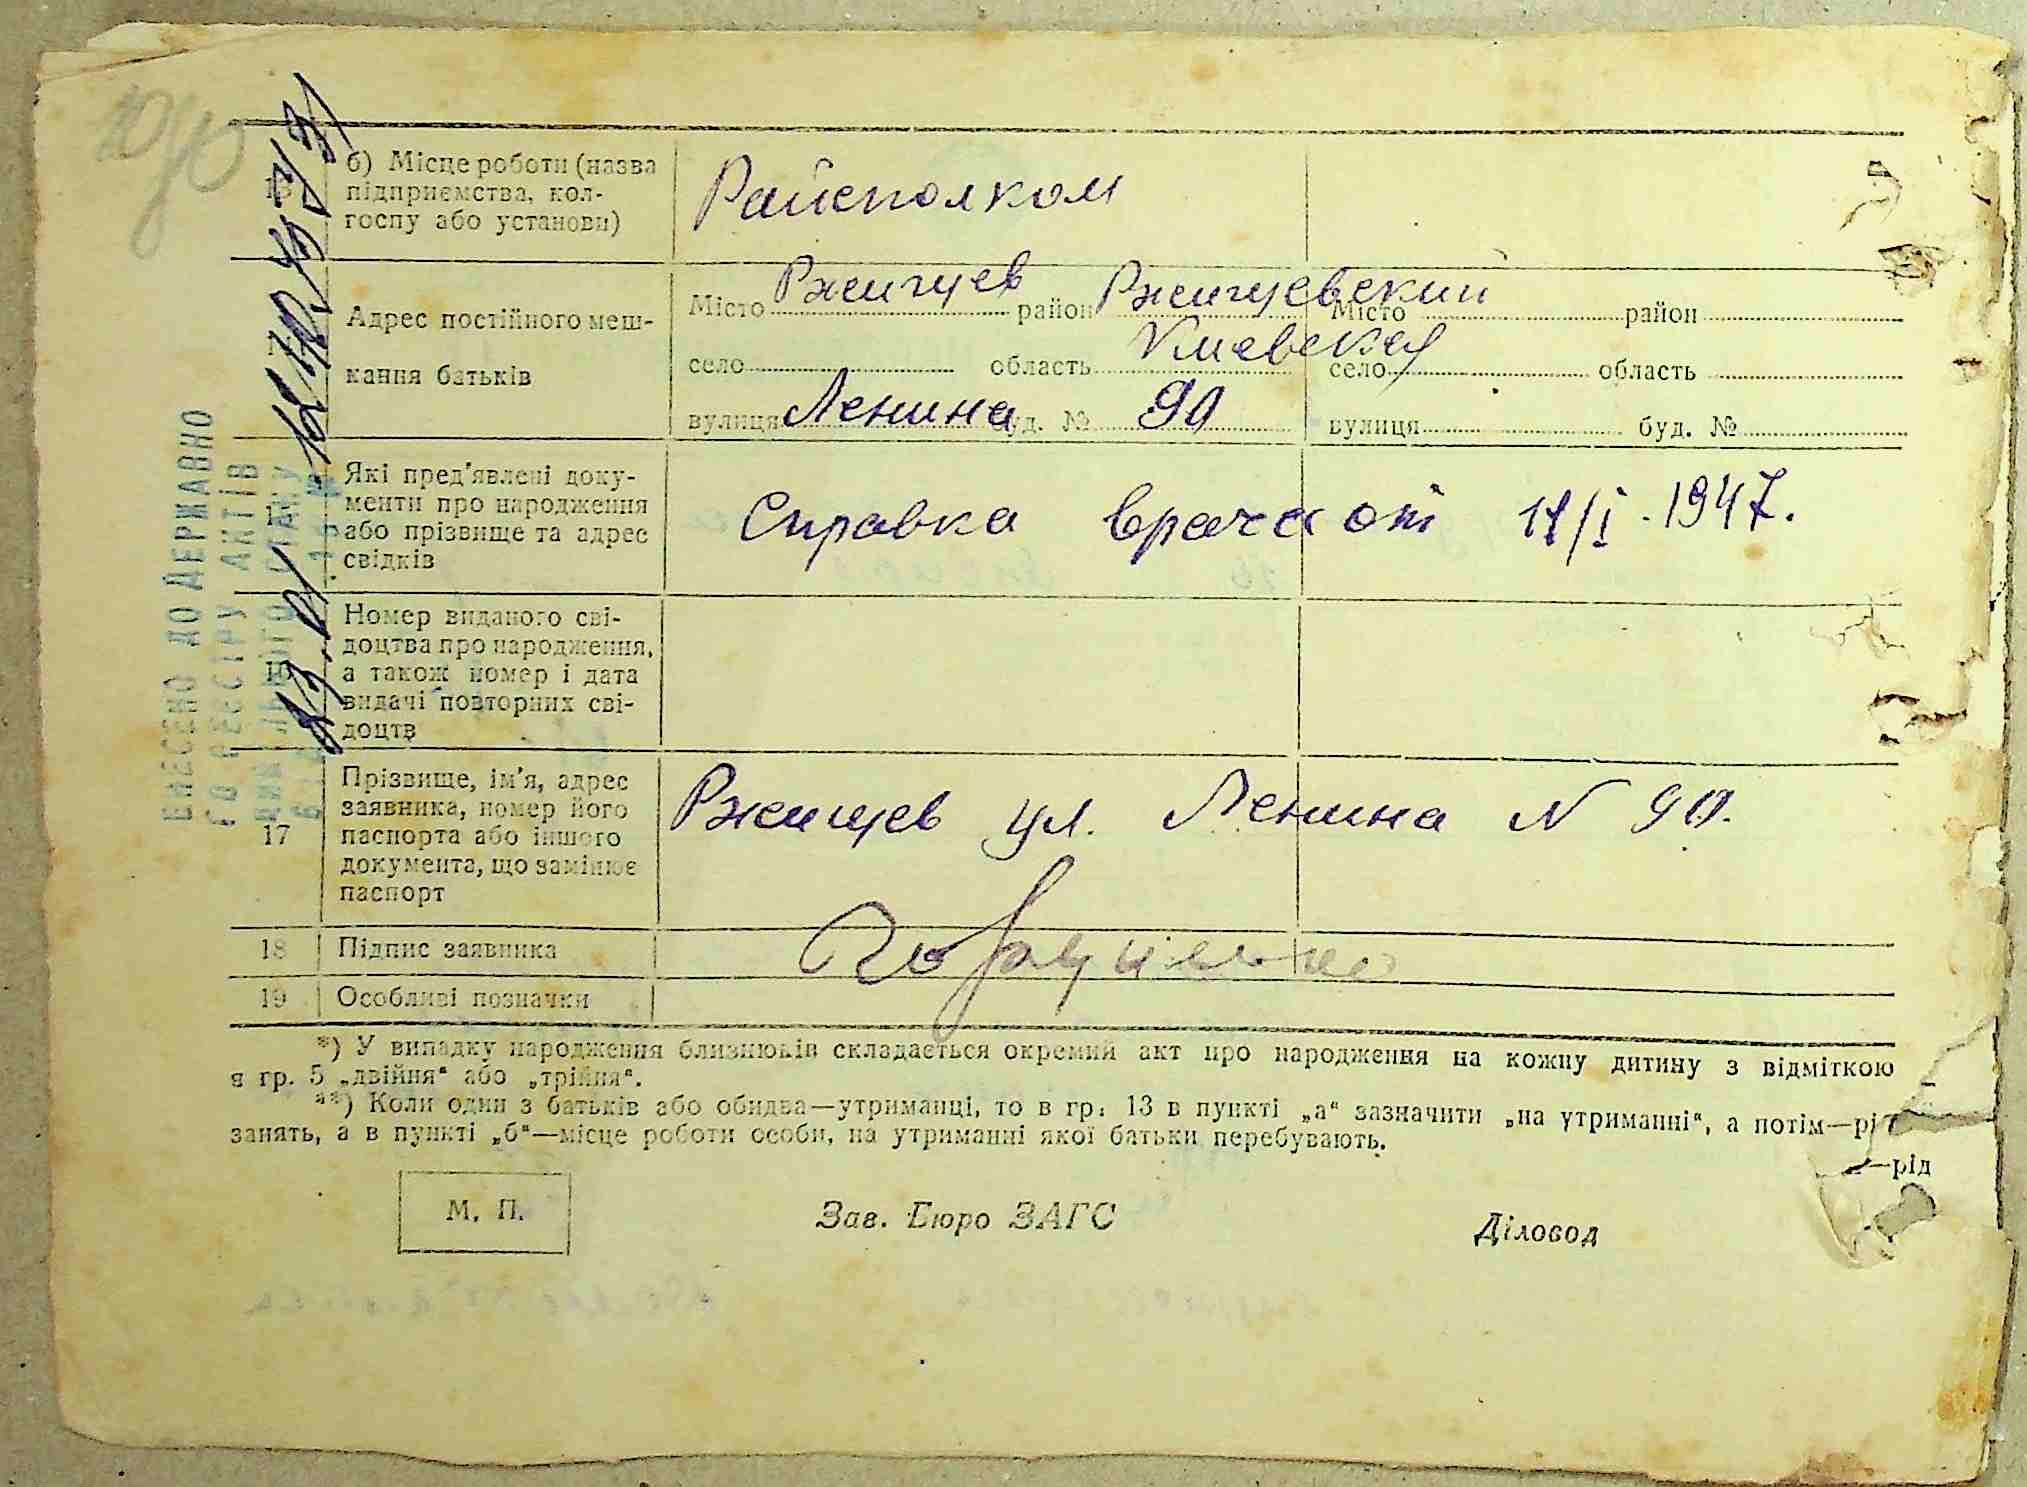 б) Місце роботи (назва
13 підприємства, кол-
госпу або установи)
Райсполком
Адрес постійного меш-
кання батьків
Місто Ржищев район Ржищевский
село область Киевская
вулиця Ленина буд. № 90
Місто район
село область
вулиця буд. №
Які пред'явлені доку-
менти про народження
або прізвище та адрес
свідків
Справка врача от 11/I. 1947.
Номер виданого сві-
доцтва про народження,
16 а також номер і дата
видачі повторних сві-
доцтв
Прізвище, ім'я, адрес
заявника, номер його
17 паспорта або іншого
документа, що замінює
паспорт
Ржищев ул. Ленина N 90.
18 Підпис заявника
19 Особливі позначки
*) У випадку народження близнюків складається окремий акт про народження на кожну дитину з відміткою
в гр. 5 „двійня“ або „трійня“.
**) Коли один з батьків або обидва—утриманці, то в гр. 13 в пункті „а“ зазначити „на утриманні“, а потім—рід
занять, а в пункті „б“—місце роботи особи, на утриманні якої батьки перебувають.
—рід
М. П.
Зав. Бюро ЗАГС
Діловод
ВНЕСЕНО ДО ДЕРЖАВНО
ГО РЕЄСТРУ АКТІВ
ЦИВІЛЬНОГО СТАНУ